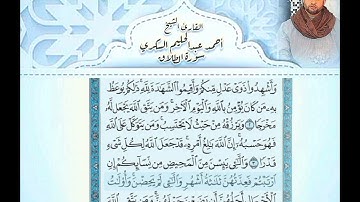 القارئ الشيخ
أحمد عبدالحليم السكري
سورة الطلاق
وَأَشْهِدُوا۟ ذَوَىْ عَدْلٍ مِّنكُمْ وَأَقِيمُوا۟ ٱلشَّهَٰدَةَ لِلَّهِ ذَٰلِكُمْ يُوعَظُ
بِهِۦ مَن كَانَ يُؤْمِنُ بِٱللَّهِ وَٱلْيَوْمِ ٱلْءَاخِرِ وَمَن يَتَّقِ ٱللَّهَ يَجْعَل لَّهُۥ
مَخْرَجًا ۝٢ وَيَرْزُقْهُ مِنْ حَيْثُ لَا يَحْتَسِبُ وَمَن يَتَوَكَّلْ عَلَى ٱللَّهِ
فَهُوَ حَسْبُهُۥٓ إِنَّ ٱللَّهَ بَٰلِغُ أَمْرِهِۦ قَدْ جَعَلَ ٱللَّهُ لِكُلِّ شَىْءٍ
قَدْرًا ۝٣ وَٱلَّٰٓـِٔى يَئِسْنَ مِنَ ٱلْمَحِيضِ مِن نِّسَآئِكُمْ إِنِ
ٱرْتَبْتُمْ فَعِدَّتُهُنَّ ثَلَٰثَةُ أَشْهُرٍ وَٱلَّٰٓـِٔى لَمْ يَحِضْنَ وَأُو۟لَٰتُ
ٱلْأَحْمَالِ أَجَلُهُنَّ أَن يَضَعْنَ حَمْلَهُنَّ وَمَن يَتَّقِ ٱللَّهَ